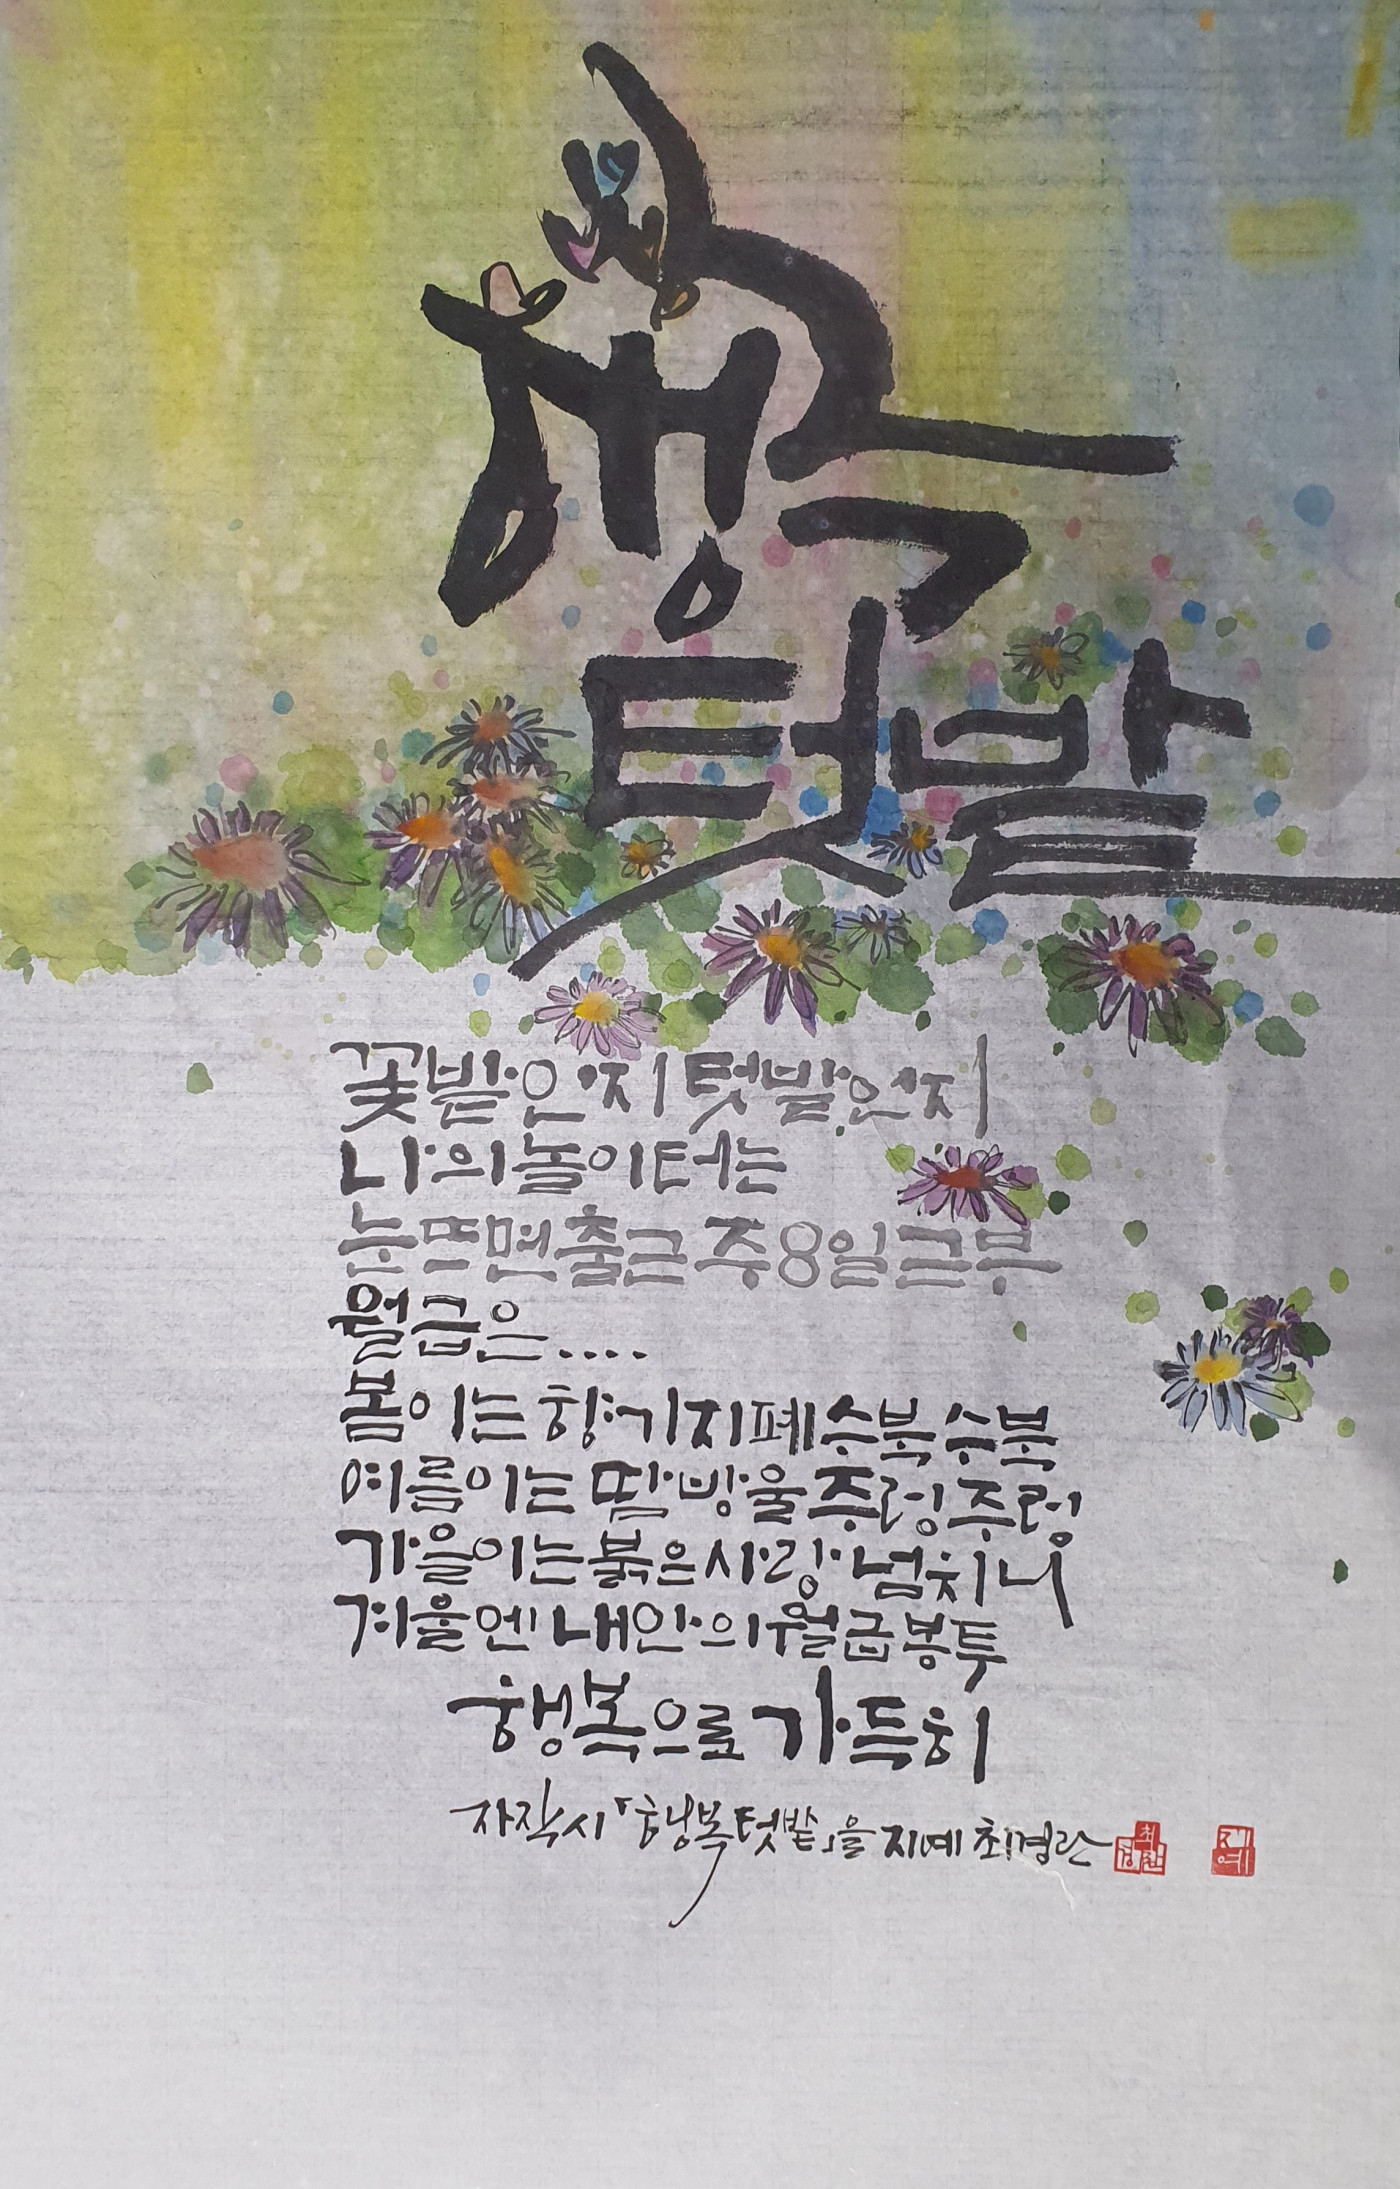 행복
텃밭
꽃밭인지 텃밭인지
나의 놀이터는
눈 뜨면 출근 주8일 근무
월급은....
봄이는 향기지폐 수북수북
여름이는 땀방울 주렁주렁
가을이는 붉은 사랑 넘치니
겨울엔 내 안의 월급봉투
행복으로 가득히
자작시「행복텃밭」을 지예 최경란
최경란 지예